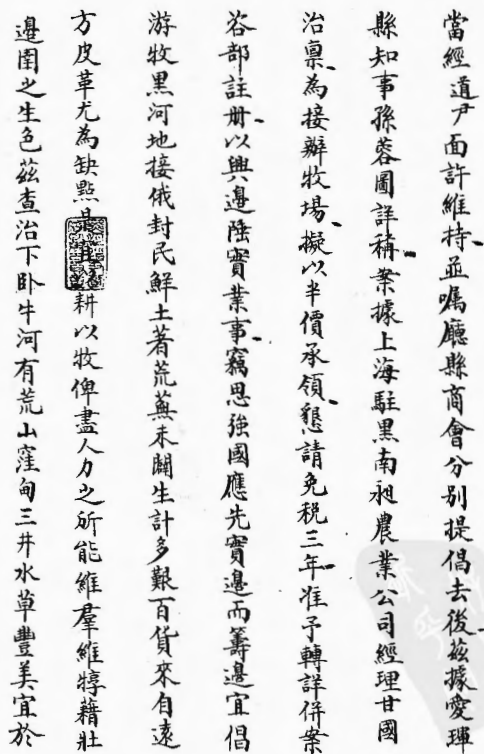 當經道尹面許維持並囑廳縣商會分別提倡去後茲據愛琿
縣知事孫蓉圖詳稱案據上海駐黑南昶農業公司經理甘國
治禀為接辦牧場擬以半價承領懇請免稅三年准予轉詳併案
咨部註册以興邊陲實業事竊思強國應先實邊而籌邊宜倡
游牧黑河地接俄封民鮮土著荒蕪未闢生計多艱百貨來自遠
方皮革尤為缺點是耕以牧俾盡人力之所能維羣維犉藉壯
邊圉之生色茲查治下卧牛河有荒山窪甸三井水草豐美宜於